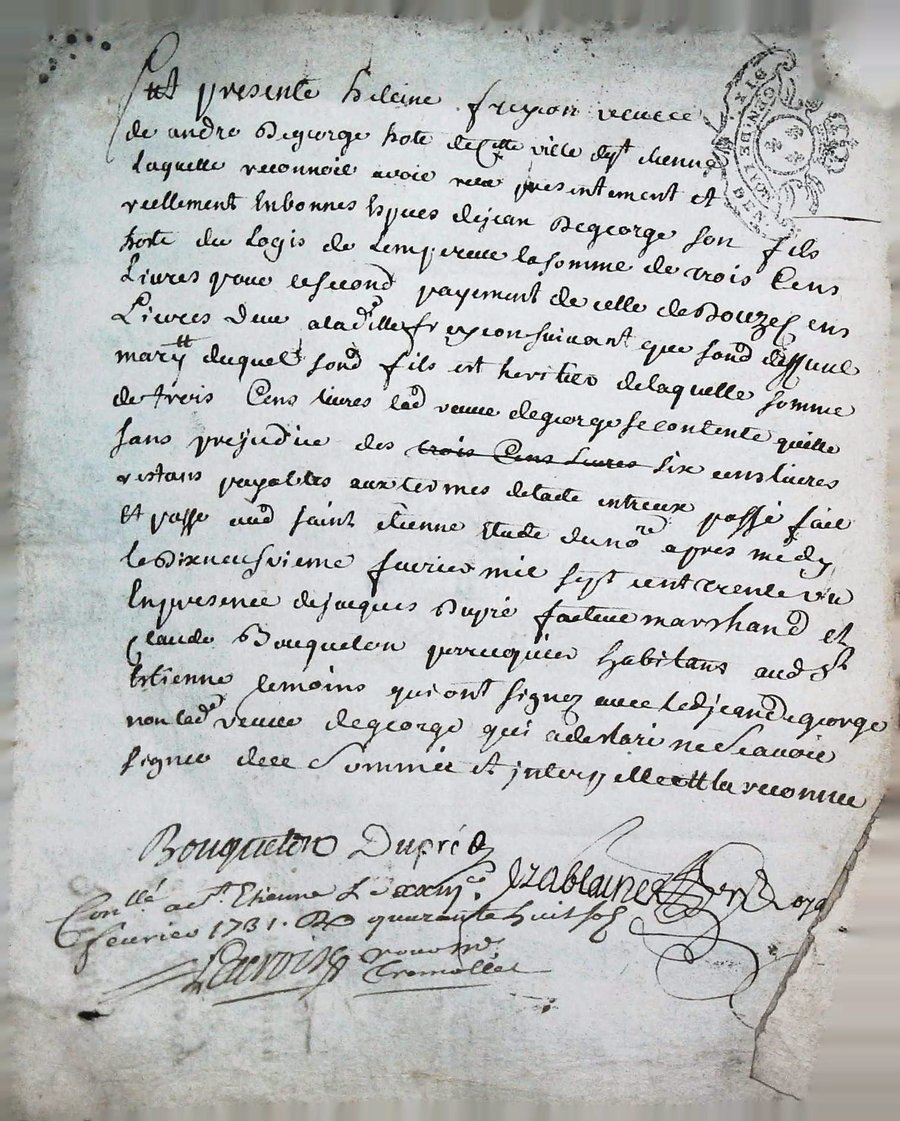 fut presente heleine freyçon veuve
de andre Degeorge hote de cette ville de st etienne
Laquelle reconnoit avoir receu presentement et
reellement En bonnes Espces de jean Degeorge son fils
hote du Logis de Lempereur la somme de trois Cens
Livres pour le second payement de celle de Douze Cens
Livres Deue a lade freyçon suivant que sond deffunt
mary duquel sond fils est heritier de laquelle somme
de trois Cens livres lad veuve degeorge se contente quitte
sans prejudice des trois Cens Livres six cens livres
restans payables aux termes de lacte entreux passé fait
Et passé aud saint etienne Etude du nore apres midy
le Dix neufvieme fevrier mil sept cent trente un
En presence de jacques Dupré facteur marchand et
Claude Bouqueton perruquier habitans aud St
Estienne temoins qui ont signez avec led jean De george
non lade veuve degeorge qui a declaré ne scavoir
signer de ce Sommée et interpellée la reconnue
Bouqueton Dupré
Conllé a St Etienne Le xxiije
fevrier 1731. R quarante huit sols
Lacroix pour mr
Tremollet
GEN. DE LYON
DIX DEN.